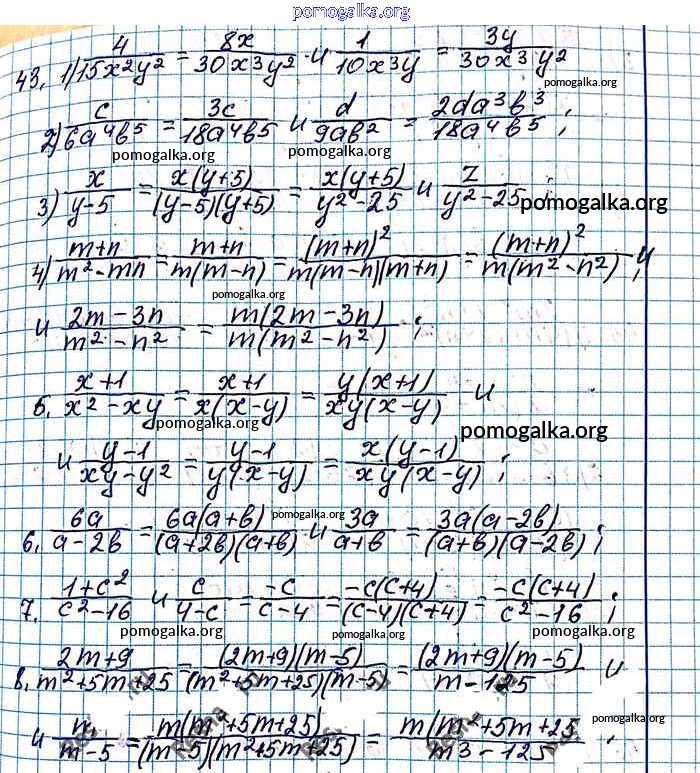 pomogalka.org
43. 1) 4/15x²y² = 8x/30x³y² и 1/10x³y = 3y/30x³y²
pomogalka.org
2) c/6a⁴b⁵ = 3c/18a⁴b⁵ и d/9ab² = 2da³b³/18a⁴b⁵ ;
pomogalka.org pomogalka.org
3) x/(y-5) = x(y+5)/(y-5)(y+5) = x(y+5)/(y²-25) и z/(y²-25) ;
pomogalka.org
4) (m+n)/(m²-mn) = (m+n)/m(m-n) = (m+n)²/m(m-n)(m+n) = (m+n)²/m(m²-n²) , и
pomogalka.org
и (2m-3n)/(m²-n²) = m(2m-3n)/m(m²-n²) ;
5. (x+1)/(x²-xy) = (x+1)/x(x-y) = y(x+1)/xy(x-y) и
pomogalka.org
pomogalka.org
и (y-1)/(xy-y²) = (y-1)/y(x-y) = x(y-1)/xy(x-y) ;
pomogalka.org
6. 6a/(a-2b) = 6a(a+b)/(a+2b)(a+b) и 3a/(a+b) = 3a(a-2b)/(a+b)(a-2b) ;
pomogalka.org
7. (1+c²)/(c²-16) и c/(4-c) = -c/(c-4) = -c(c+4)/(c-4)(c+4) = -c(c+4)/(c²-16) ;
pomogalka.org pomogalka.org pomogalka.org
8. (2m+9)/(m²+5m+25) = (2m+9)(m-5)/(m²+5m+25)(m-5) = (2m+9)(m-5)/(m-125) и
pomogalka.org
и n/(m-5) = m(m²+5m+25)/(m-5)(m²+5m+25) = m(m²+5m+25/(m3-125) ;